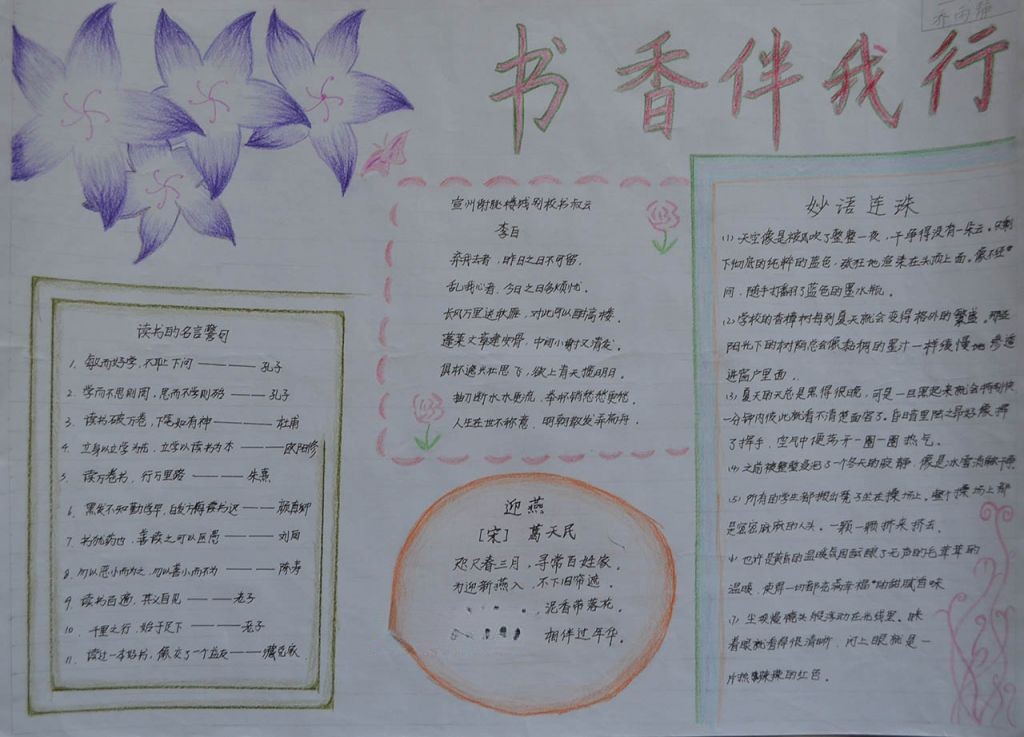 乔雨静
书香伴我行
读书的名言警句
1、敏而好学,不耻下问———孔子
2、学而不思则罔,思而不学则殆——孔子
3、读书破万卷,下笔如有神———杜甫
4、立身以立学为先,立学以读书为本——欧阳修
5、读万卷书,行万里路———朱熹
6、黑发不知勤学早,白首方悔读书迟——颜真卿
7、书犹药也,善读之可以医愚———刘向
8、勿以恶小而为之,勿以善小而不为——陈寿
9、读书百遍,其义自见———老子
10、千里之行,始于足下———老子
11、读过一本好书,像交了一个益友——臧克家
宣州谢朓楼饯别校书叔云
李白
弃我去者,昨日之日不可留,
乱我心者,今日之日多烦忧。
长风万里送秋雁,对此可以酣高楼。
蓬莱文章建安骨,中间小谢又清发。
俱怀逸兴壮思飞,欲上青天揽明日。
抽刀断水水更流,举杯销愁愁更愁。
人生在世不称意,明朝散发弄扁舟。
迎燕
[宋] 葛天民
咫尺春三月,寻常百姓家。
为迎新燕入,不下旧帘遮。
泥香带落花。
相伴过年华。
妙语连珠
(1)天空像是被风吹了整整一夜,干净得没有一朵云。只剩
下彻底的纯粹的蓝色,张狂地渲染在头顶上面。像不经
间,随手打翻了蓝色的墨水瓶。
(2)学校的香樟树每到夏天就会变得格外的繁盛。那些
阳光下的树荫总会像黏稠的墨汁一样缓慢地渗透
进窗户里面。
(3)夏天的天总是黑得很晚,可是一旦黑起来就会特别快
一分钟内彼此就看不清楚面容了。
了挥手,空气中便荡开一圈一圈热气。
(4)之前被整整浸泡了一个冬天的寂静,像是冰雪消融
(5)所有的学生都搬出凳子坐在操场上。整个操场上都
是密密麻麻的人头。一颗一颗挤来挤去。
温暖,使得一切都充满幸福
着眼就看得很清晰,闭上眼就是一
的红色。